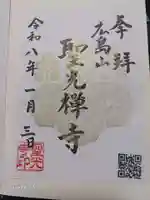 奉拝
広島山
聖光禅寺
令和八年一月三日